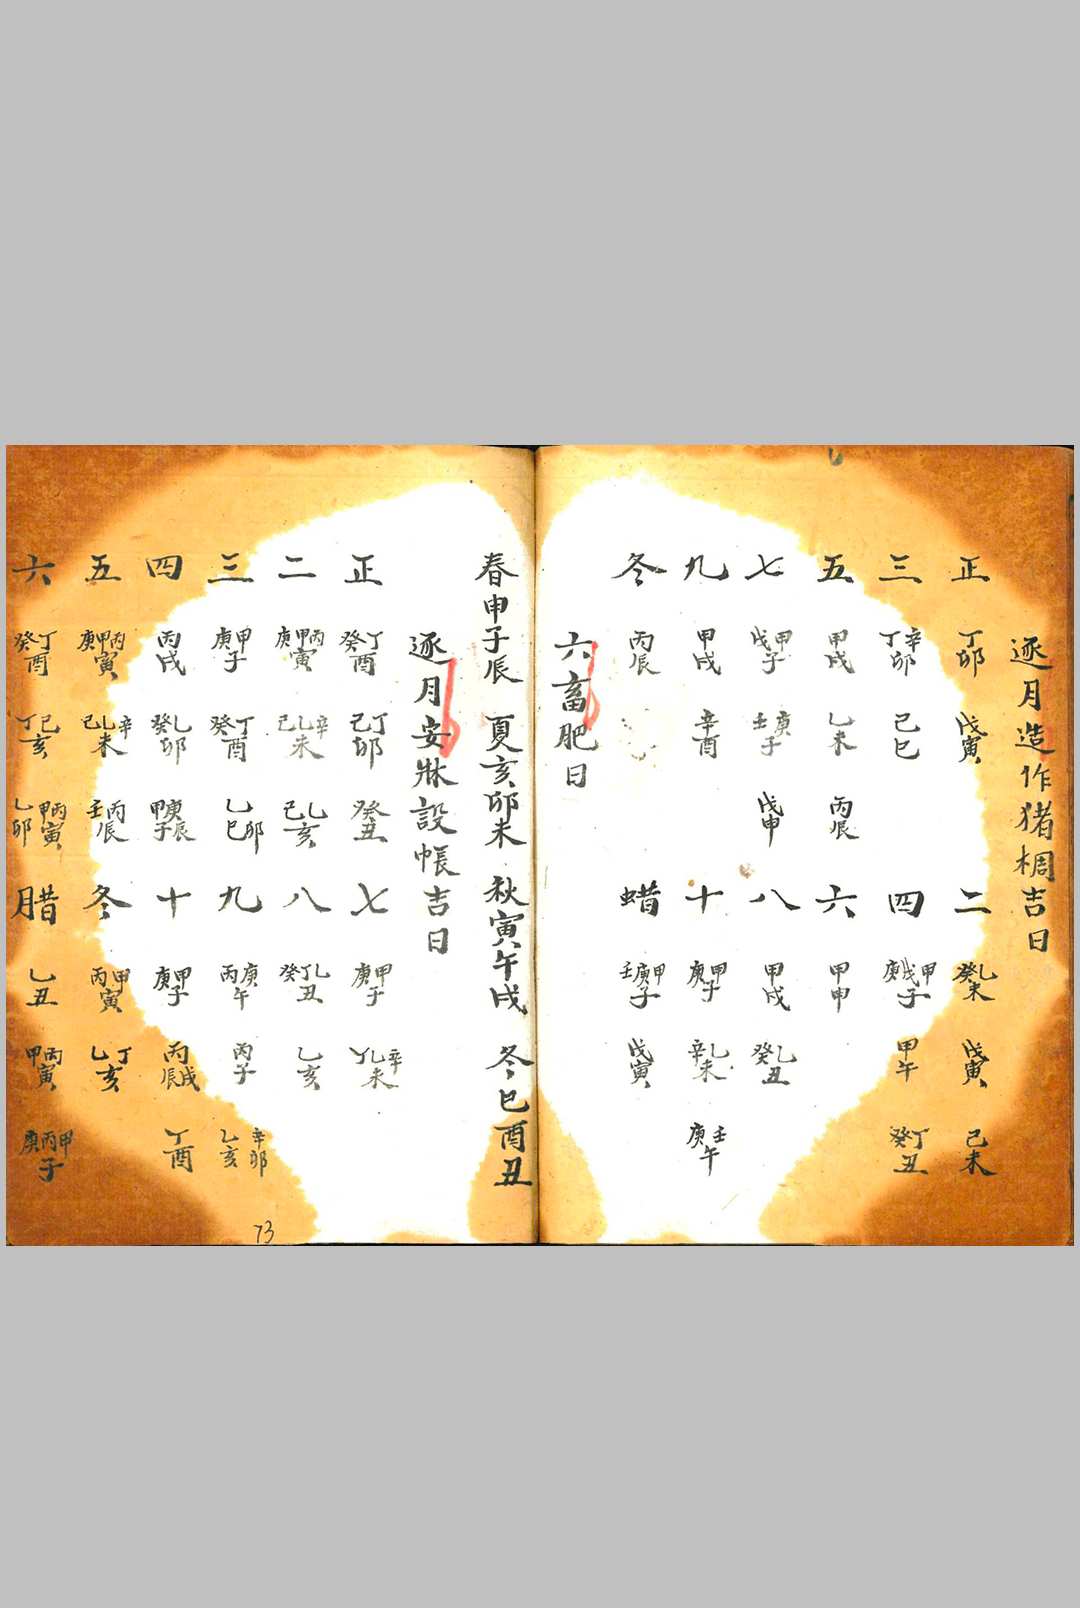 逐月造作猪椆吉日
正 丁卯 戊寅
二 乙癸未 戊寅 己未
三 辛丁卯 己巳
四 甲戊庚子 甲午 丁癸丑
五 甲戌 乙未 丙辰
六 甲申
七 甲戊子 庚壬子 戊申
八 甲戌 乙癸丑
九 甲戌 辛酉
十 甲庚子 乙辛未 壬庚午
冬 丙辰
蜡 甲庚壬子 戊寅
六畜肥日
春申子辰 夏亥卯未 秋寅午戌 冬巳酉丑
逐月安牀設帳吉日
正 丁癸酉 丁己卯 癸丑
七 甲庚子 辛乙丫未
二 丙甲庚寅 辛乙己未 乙己亥
八 乙丁癸丑 乙亥
三 甲庚子 丁癸酉 卯乙巳
九 庚丙午 丙子 辛卯乙亥
四 丙戌 乙癸卯 庚辰甲子
十 甲庚子 丙戌辰 丁酉
五 丙甲庚寅 辛乙己未 丙壬辰
冬 甲丙寅 丁乙亥
六 丁癸酉 己丁亥 丙甲寅乙卯
腊 乙丑 丙甲寅 甲丙庚子
73